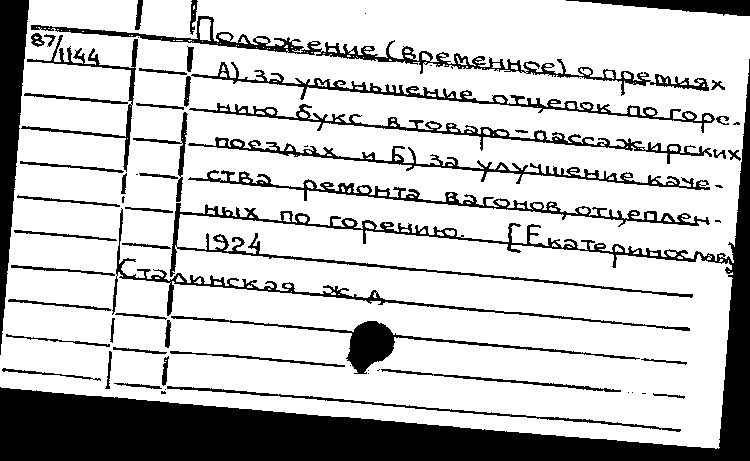 87/1144 Положение (временное) о премиях
А). за уменьшение отцепок по горе-
нию букс в товаро-пассажирских
поездах и Б) за улучшение каче-
ства ремонта вагонов, отцеплен-
ных по горению. [Екатеринославль]
1924
Сталинская ж.д